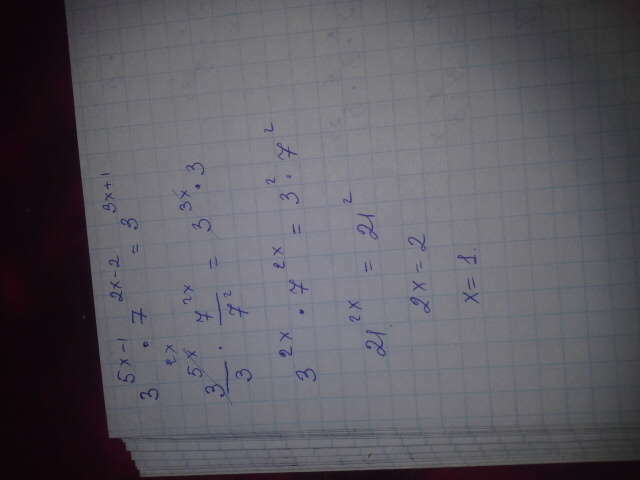 3^(5x-1) · 7^(2x-2) = 3^(3x+1)
2x
3^(5x)/3 · 7^(2x)/7^2 = 3^(3x) · 3
3^(2x) · 7^(2x) = 3^2 · 7^2
21^(2x) = 21^2
2x = 2
x = 1.